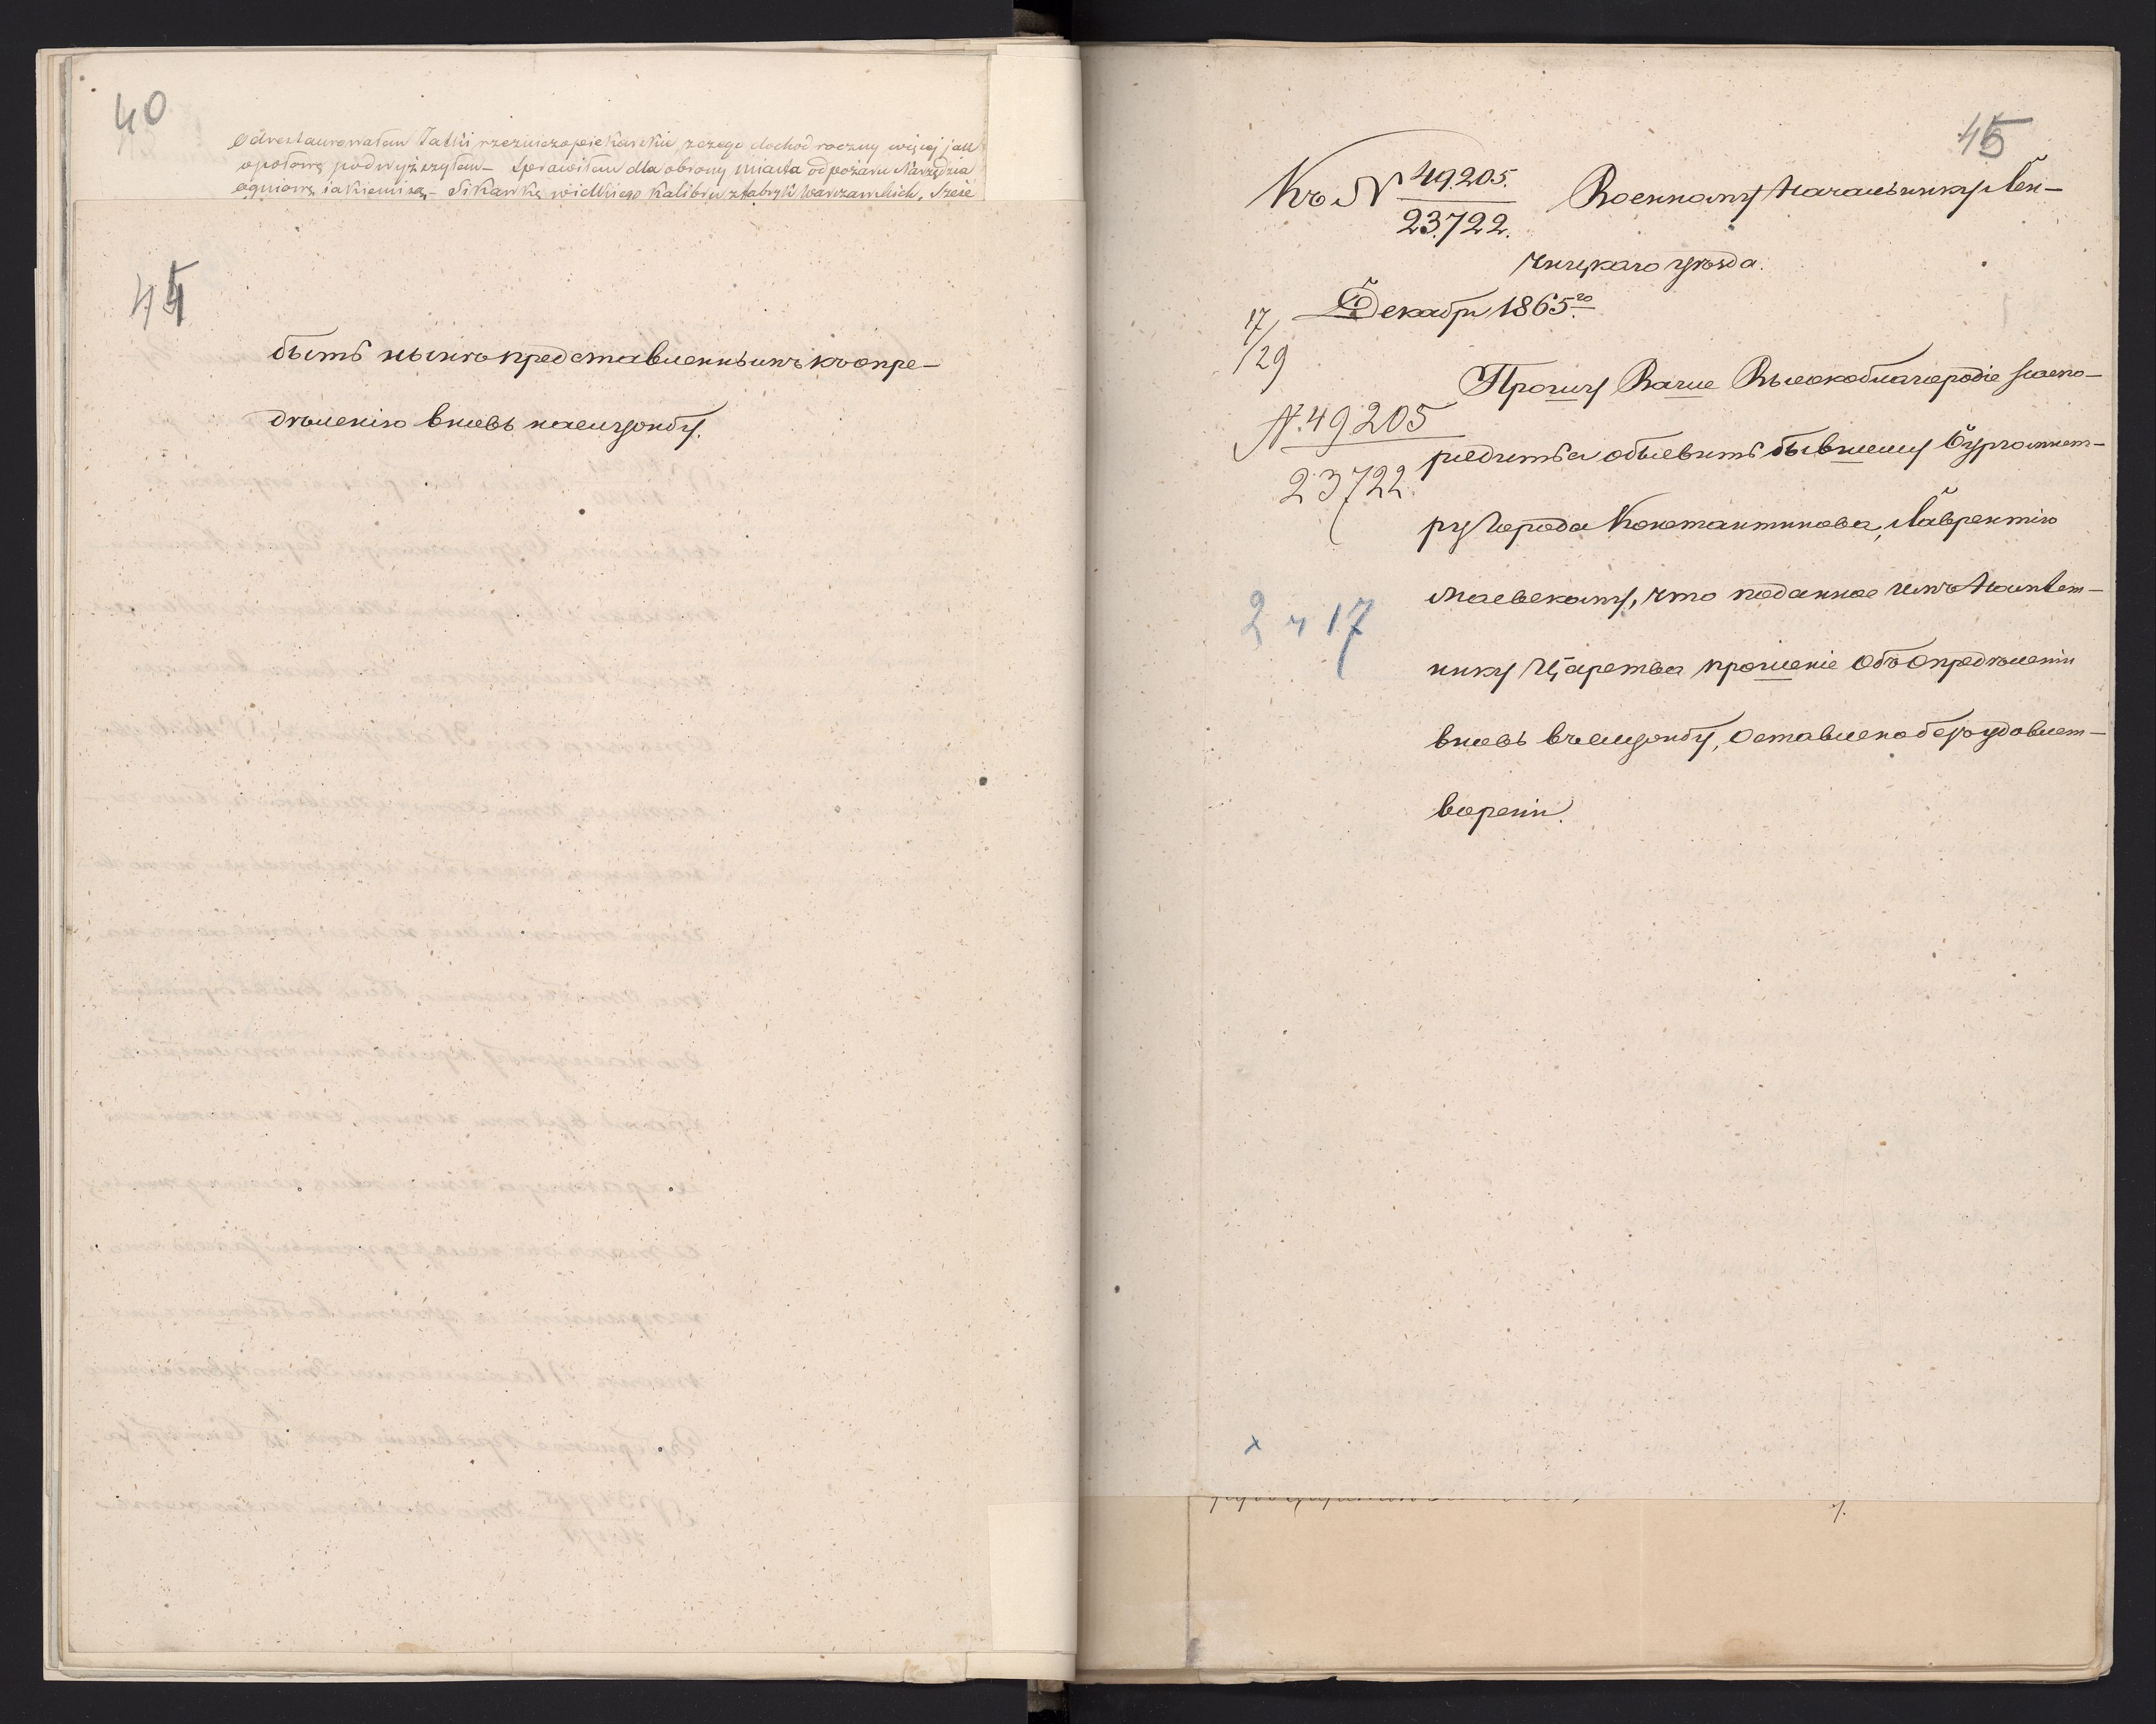 40
Odrestaurowałem Jatki rzeźniczo piekarskie, z czego dochod roczny więcej jak
opołowę podwyższyłem – Sprawiłem dla obrony miasta od pożaru Narzędzia
ogniowe iakiemi są – Sikawkę wielkiego Kalibru z fabryk Warszawskich, Sześć
44
быть нынѣ представленнымъ къ опре–
дѣленію вновь на службу.
45
Къ № 49.205.
23.722.
Военному Начальнику Лен–
чицкаго уѣзда.
17/29 Декабря 1865го
№ 49205
23722
Прошу Ваше Высокоблагородіе распо–
рядиться объявить бывшему Бургомист–
ру города Константинова, Лаврентію
Маевскому, что поданное имъ Намѣст–
нику Царства прошеніе объ опредѣленіи
вновь въ службу, оставлено безъ удовлет–
воренія.
2 ч 17
x